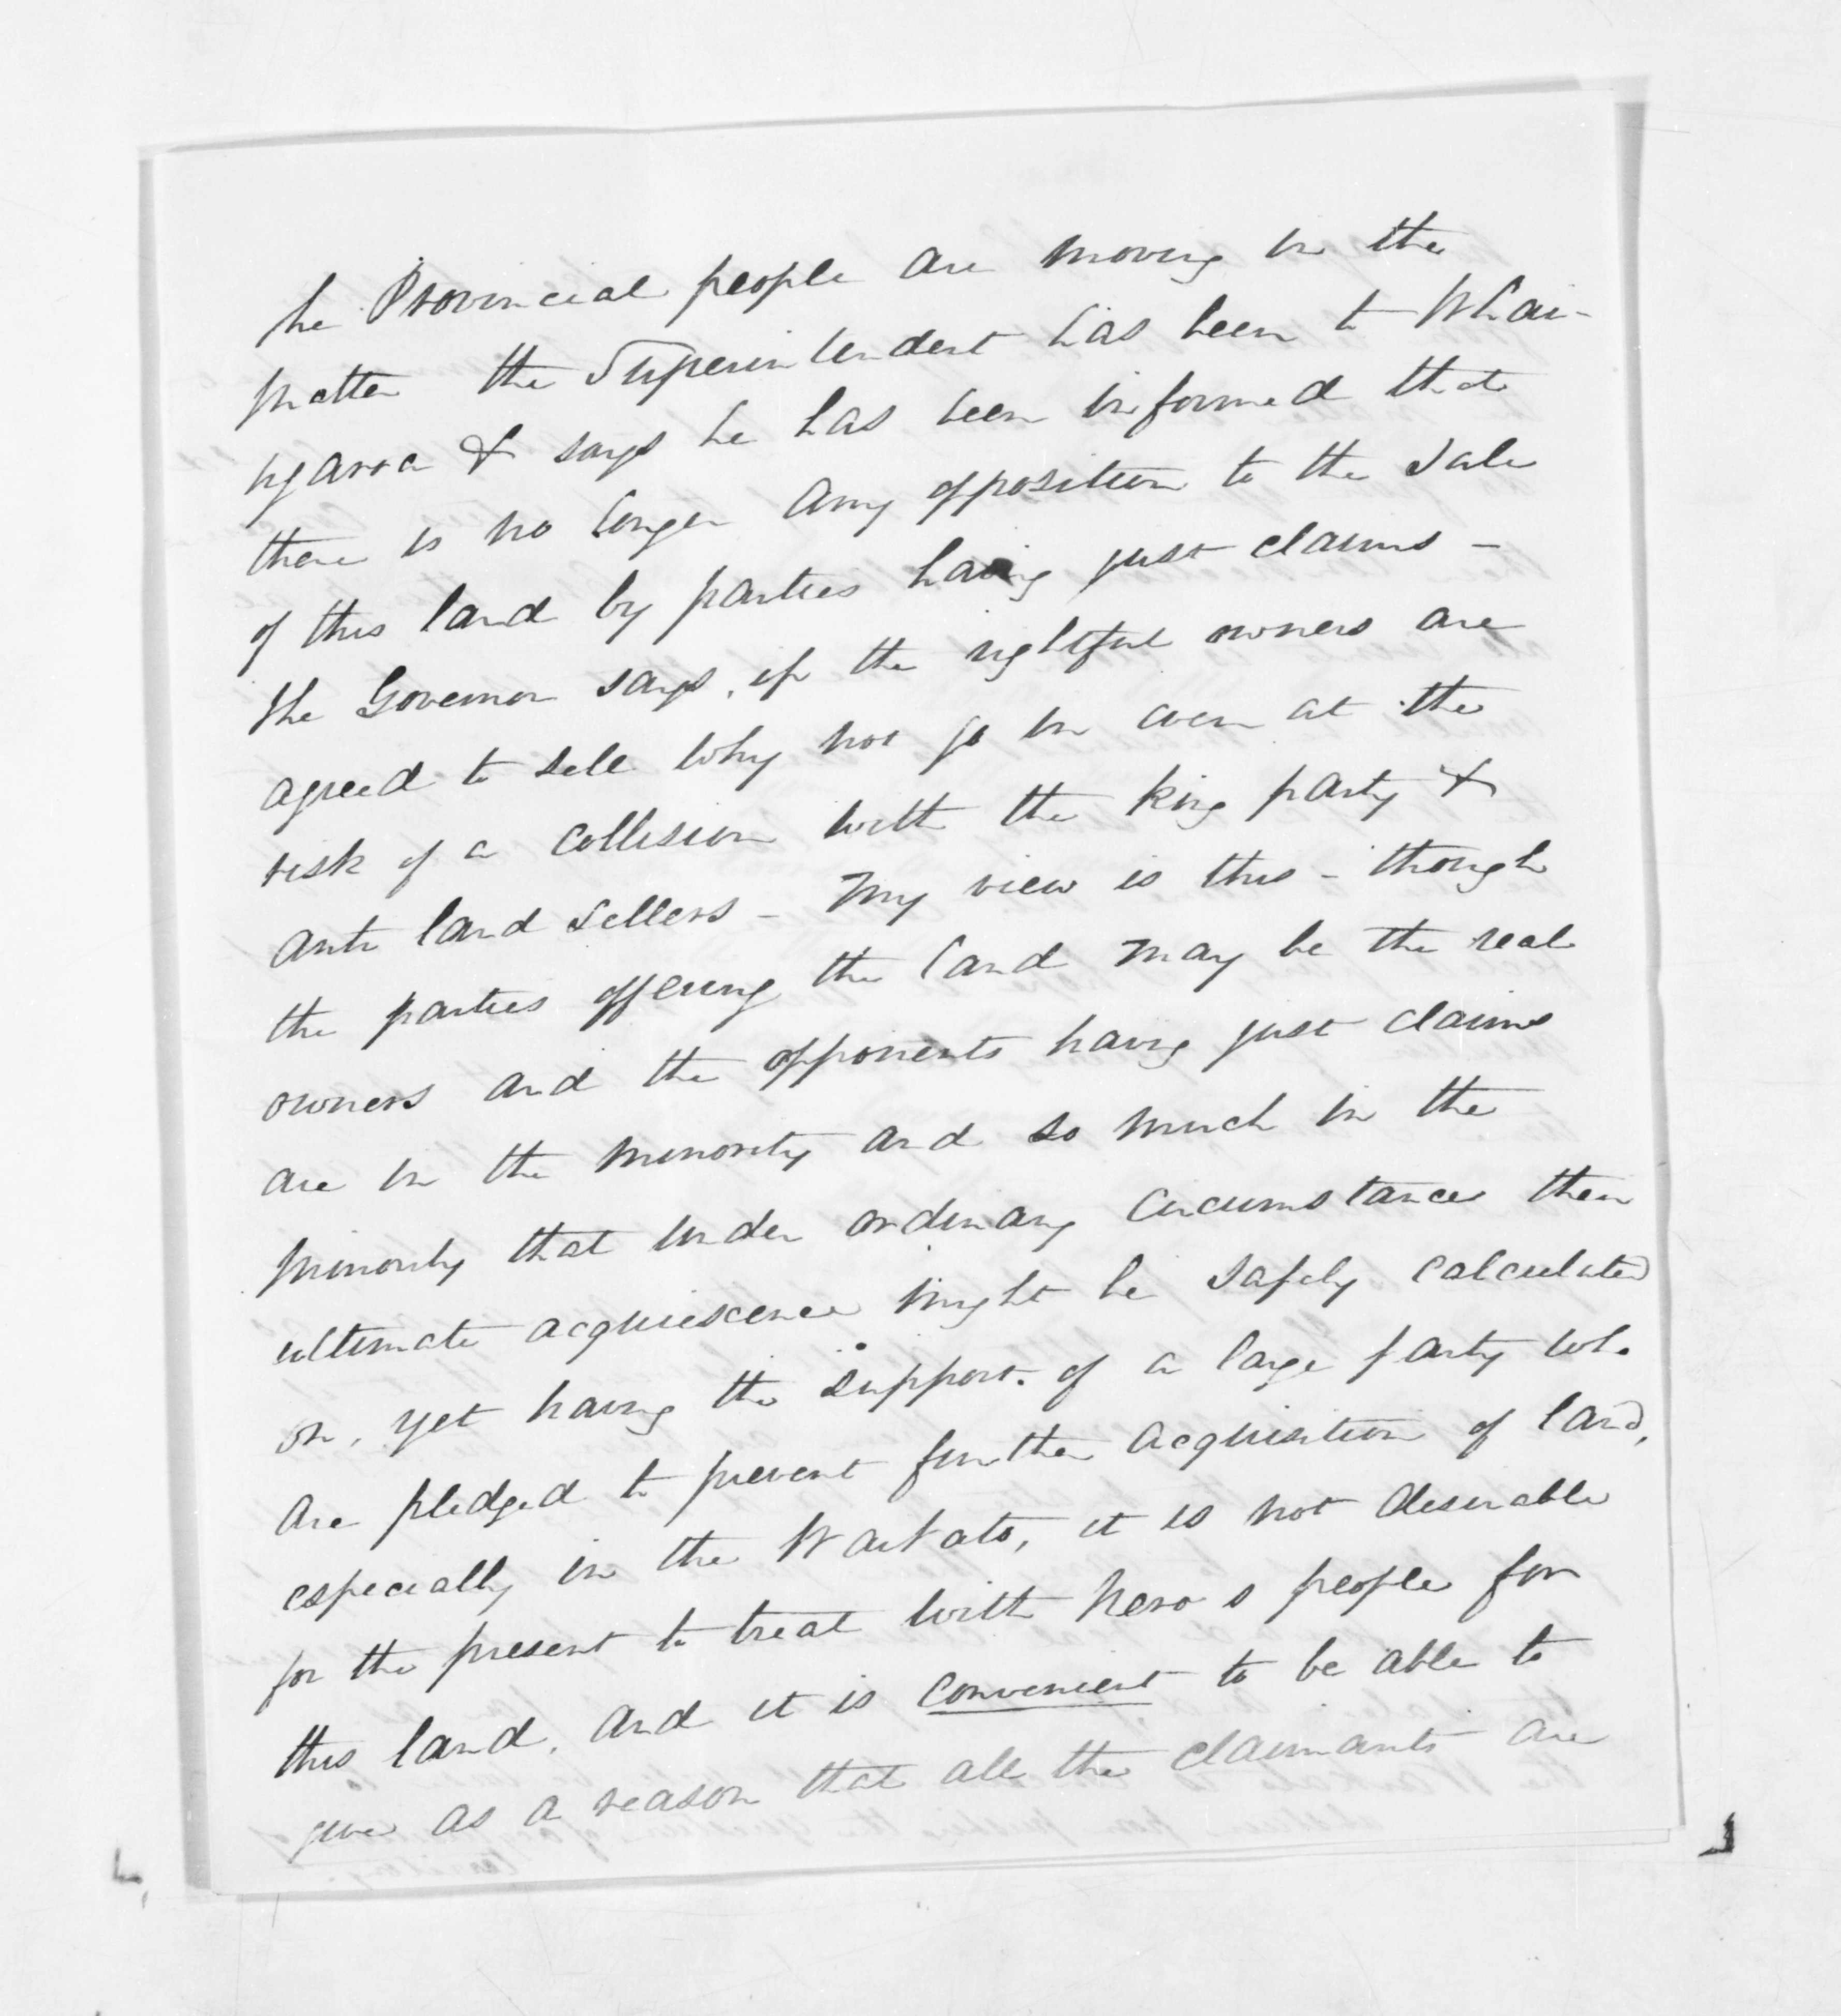 he Provincial people are moving in the
matter the Superintendent has been to Whai-
ngaroa & says he has been informed that
there is no longer any opposition to the sale
of this land by parties having just claims -
The Governor says, if the rightful owners are
agreed to sell why not go in even at the
risk of a collision with the King party &
anti land sellers - My view is this - though
the parties offering the land may be the real
owners and the opponents having just claims
are in the minority and so much in the
minority that under ordinary circumstances their
ultimate acquiescence might be safely calculated
on, yet having the support of a large party who
are pledged to prevent further acquisition of land,
especially in the Waikato, it is not desirable
for the present to treat with Nero s people for
this land, and it is convenient to be able to
give as a reason that all the claimants are